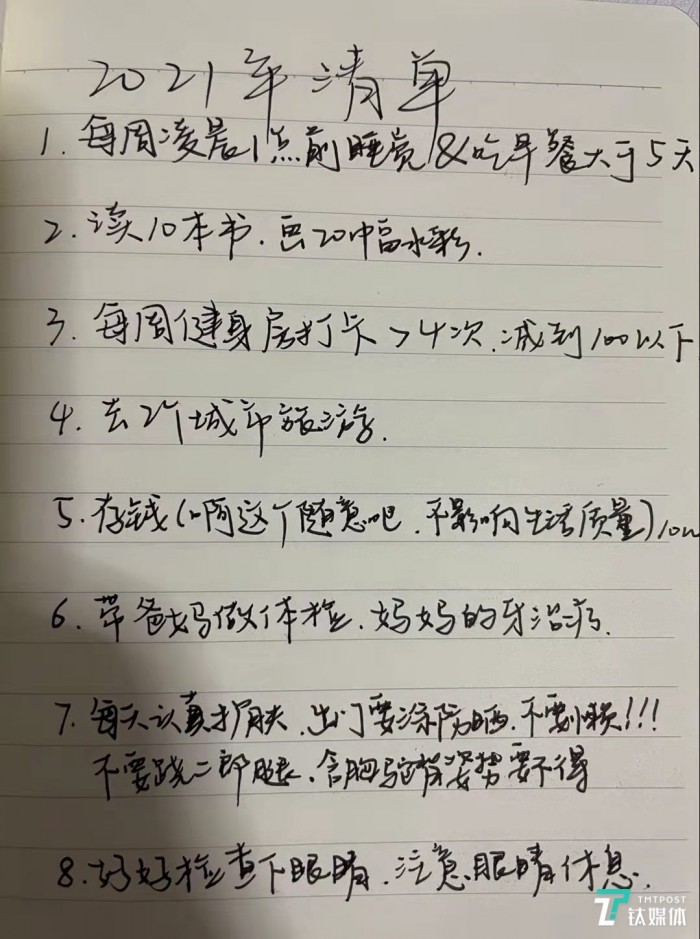 2021年清单
1. 每周凌晨1点前睡觉&吃早餐大于5天
2. 读10本书、画20幅水彩.
3. 每周健身房打卡>4次、减到100以下
4. 去2个城市旅游.
5. 存钱(啊这个随意吧、不影响生活质量)10w
6. 带爸妈做体检、妈妈的牙治疗.
7. 每天认真护肤、出门要涂防晒、不要懒!!!
不要跷二郎腿、含胸驼背姿势要不得
8. 好好检查下眼睛、注意眼睛休息.
TMTPOST
钛媒体